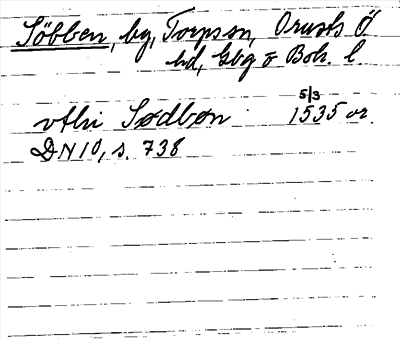 Söbben, by, Torps sn, Orusts Ö
hd, Gbg o Boh. l.
vthi Sødbon 5/3 1535 or
DN 10, s. 738